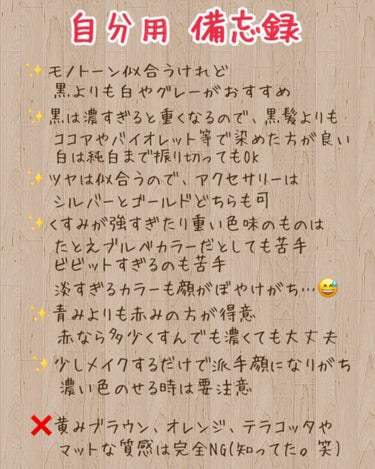 自分用 備忘録
✨モノトーン似合うけれど
黒よりも白やグレーがおすすめ
✨黒は濃すぎると重くなるので、黒髪よりも
ココアやバイオレット等で染めた方が良い
白は純白まで振り切ってもOK
✨ツヤは似合うので、アクセサリーは
シルバーとゴールドどちらも可
✨くすみが強すぎたり重い色味のものは
たとえブルベカラーだとしても苦手
ビビットすぎるのも苦手
淡すぎるカラーも顔がぼやけがち…😅
✨青みよりも赤みの方が得意
赤なら多少くすんでも濃くても大丈夫
✨少しメイクするだけで派手顔になりがち
濃い色のせる時は要注意
❌黄みブラウン、オレンジ、テラコッタや
マットな質感は完全NG(知ってた。笑)